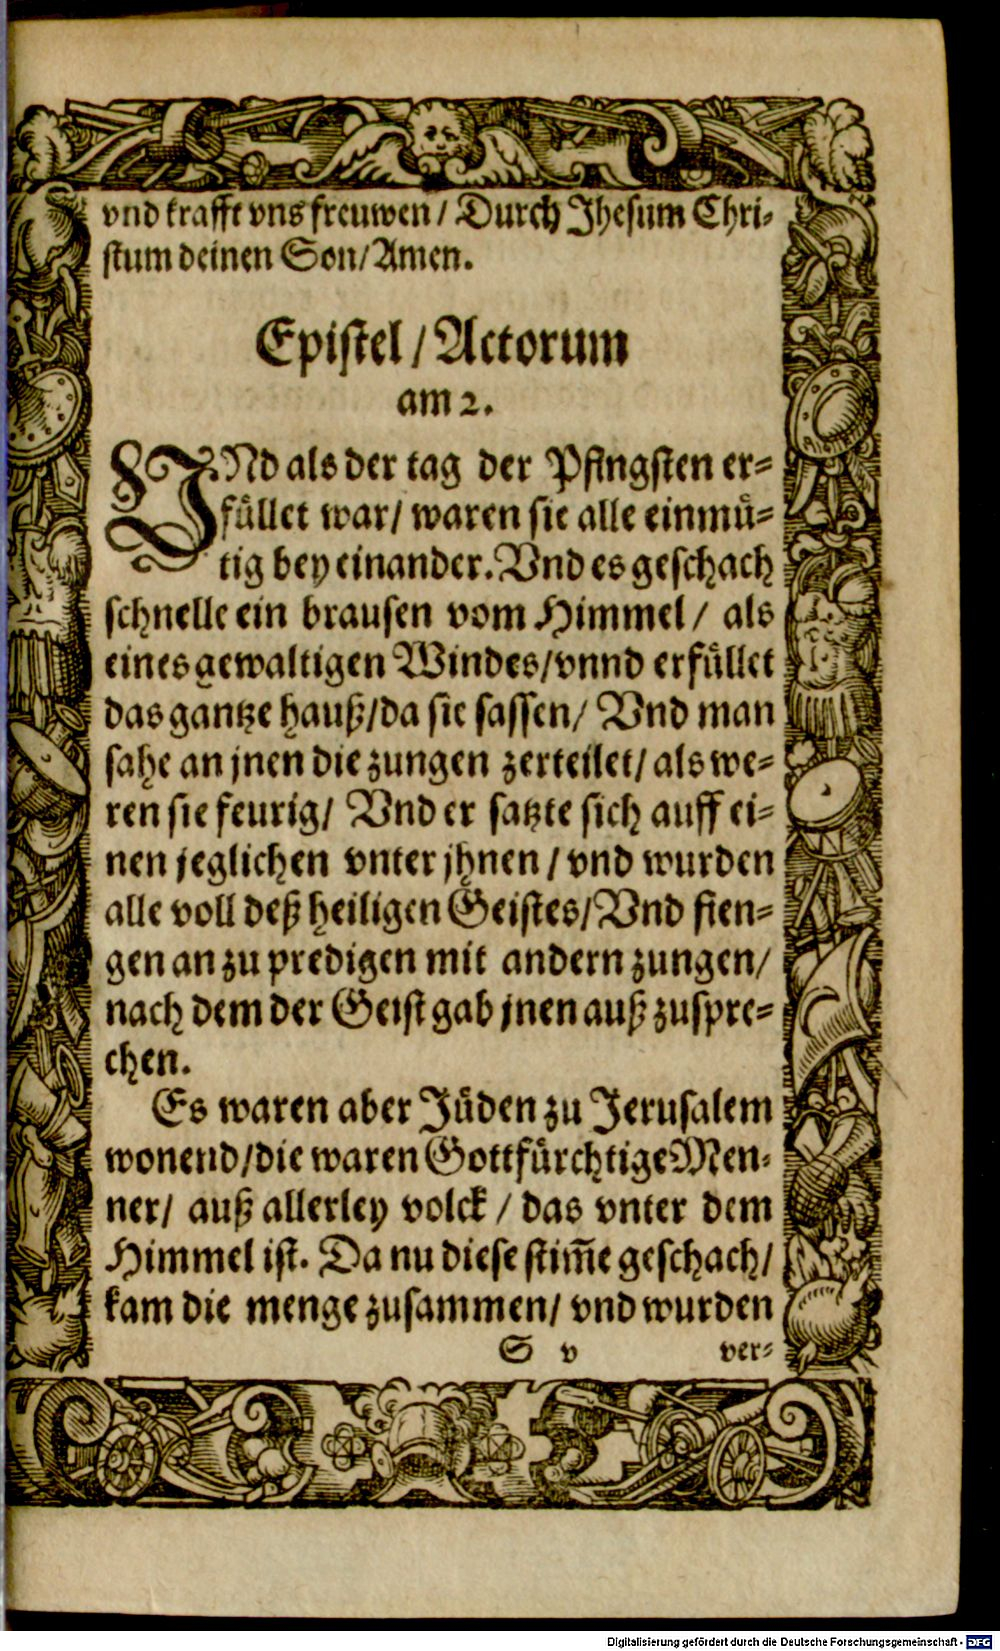 vnd krafft vns freuwen / Durch Jhesum Chri-
stum deinen Son/ Amen.
Epistel / Actorum
am 2.
VNd als der tag der Pfingsten er-
fuͤllet war/ waren sie alle einmuͤ-
tig bey einander. Vnd es geschach
schnelle ein brausen vom Himmel/ als
eines gewaltigen Windes/ vnnd erfuͤllet
das gantze hauß/ da sie sassen/ Vnd man
sahe an jnen die zungen zerteilet/ als we-
ren sie feurig/ Vnd er satzte sich auff ei-
nen jeglichen vnter jhnen / vnd wurden
alle voll deß heiligen Geistes/ Vnd fien-
gen an zu predigen mit andern zungen/
nach dem der Geist gab jnen auß zuspre-
chen.
Es waren aber Juͤden zu Jerusalem
wonend/ die waren Gottfuͤrchtige Men-
ner/ auß allerley volck / das vnter dem
Himmel ist. Da nu diese stim̃e geschach/
kam die menge zusammen/ vnd wurden
S v ver-
Digitalisierung gefördert durch die Deutsche Forschungsgemeinschaft - DFG